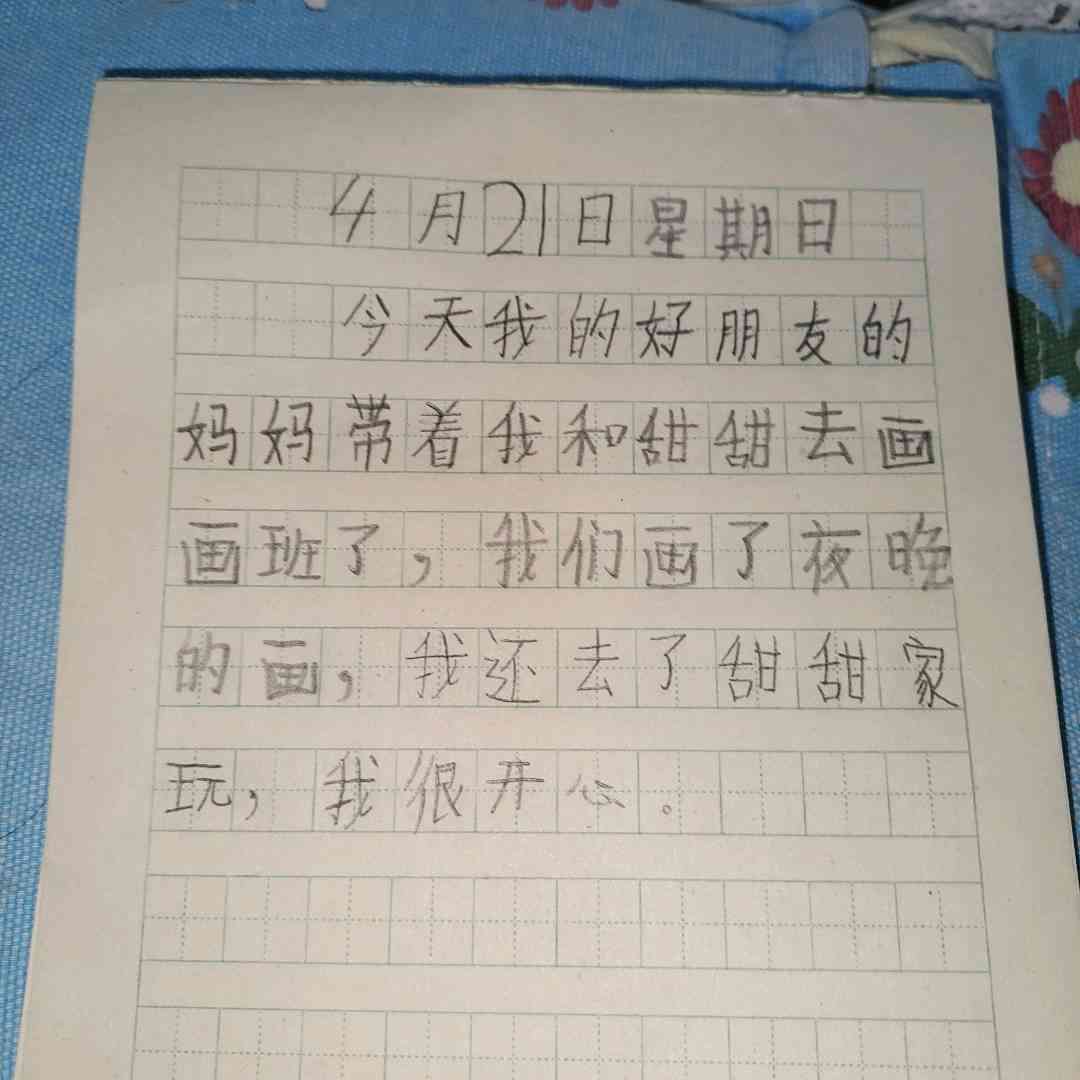 4月21日星期日
今天我的好朋友的
妈妈带着我和甜甜去画
画班了，我们画了夜晚
的画，我还去了甜甜家
玩，我很开心。